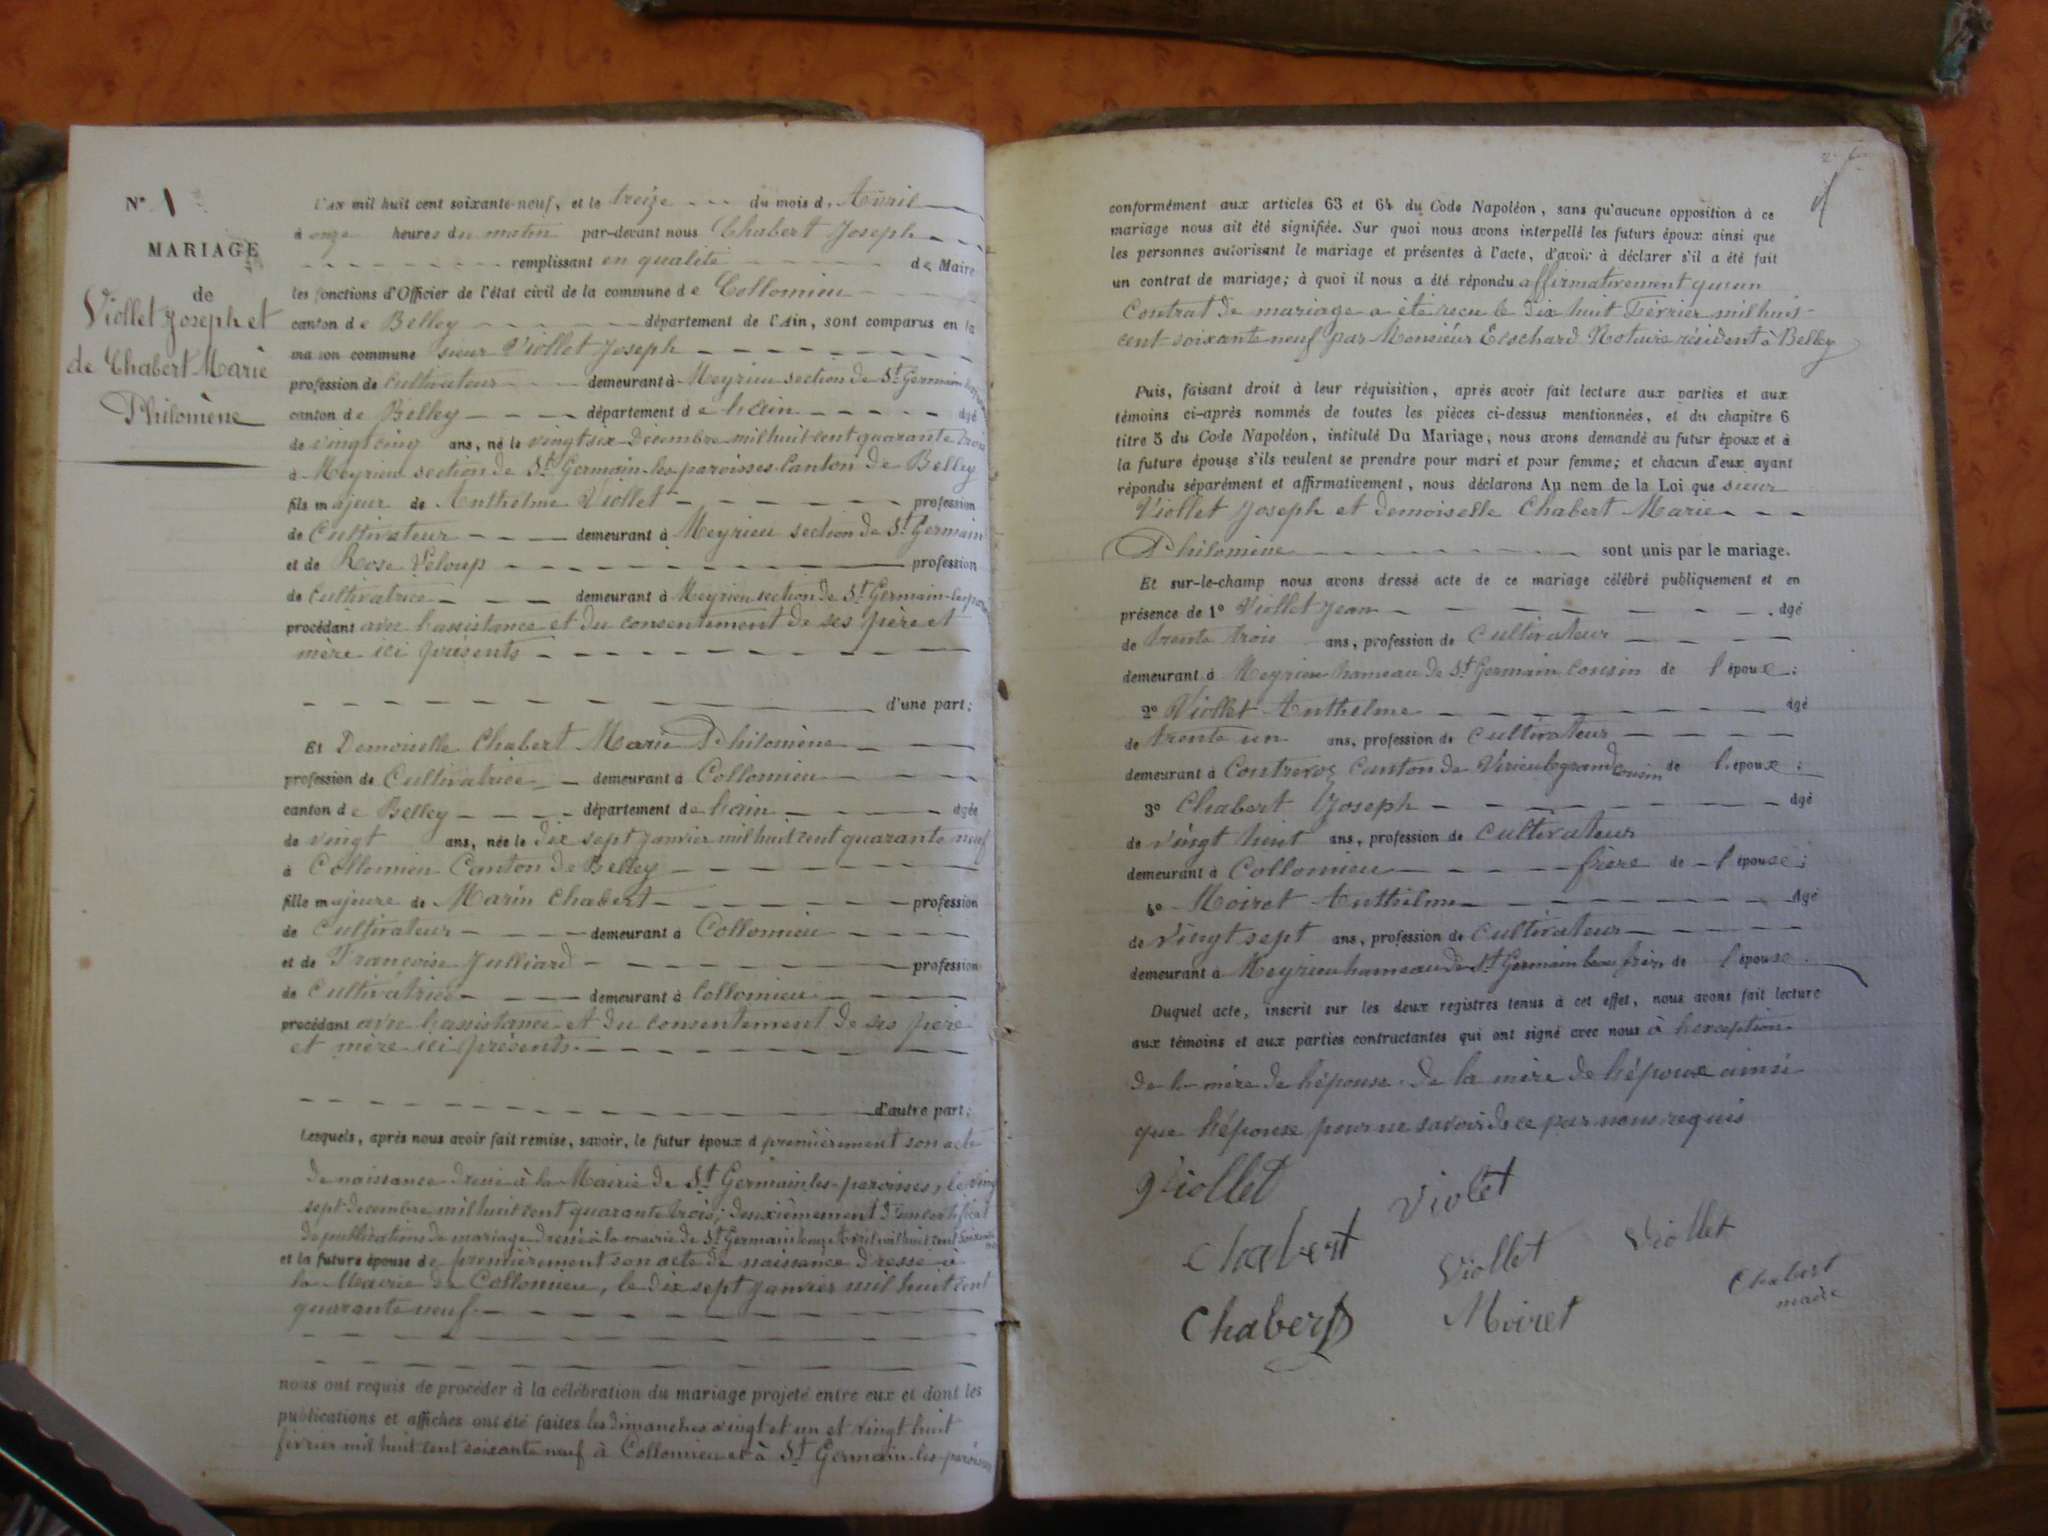 N° 1
MARIAGE
de
Viollet Joseph et
de Chabert Marie
Philomène
L'AN mil huit cent soixante-neuf, et le treize du mois d. Avril
à onze heures du matin par-devant nous Chabert Joseph
remplissant en qualité de Maire
les fonctions d'Officier de l'état civil de la commune de Collomieu
canton de Belley département de l'Ain, sont comparus en la
maison commune sieur Viollet Joseph
profession de cultivateur demeurant à Meyrieu section de St Germain
canton de Belley département de hain âgé
de vingt cinq ans, né le vingt six Décembre mil huit cent quarante trois
à Meyrieu section de St Germain-les-paroisses Canton de Belley
fils majeur de Anthelme Viollet profession
de Cultivateur demeurant à Meyrieu section de St Germain
et de Rose Veloup profession
de Cultivatrice demeurant à Meyrieu section de St Germain-les-paro
procédant avec l'assistance et du consentement de ses père et
mère ici présents
d'une part;
Et Demoiselle Chabert Marie Philomène
profession de Cultivatrice demeurant à Collomieu
canton de Belley département de hain âgée
de vingt ans, née le dix sept janvier mil huit cent quarante neuf
à Collomieu Canton de Belley
fille majeure de Marin Chabert profession
de Cultivateur demeurant à Collomieu
et de Françoise Julliard profession
de Cultivatrice demeurant à Collomieu
procédant avec l'assistance et du consentement de ses père
et mère ici présents.
d'autre part;
Lesquels, après nous avoir fait remise, savoir, le futur époux d premièrement son acte
de naissance dressé à la Mairie de St Germain les-paroisses, le vingt
sept décembre mil huit cent quarante trois; deuxièmement d'un certificat
de publications de mariage dressé à la mairie de St Germain le onze Avril mil huit cent soixante
et la future épouse de premièrement son acte de naissance dressé à
la Mairie de Collomieu, le dix sept janvier mil huit cent
quarante neuf.
nous ont requis de procéder à la célébration du mariage projeté entre eux et dont les
publications et affiches ont été faites les dimanches vingt et un et vingt huit
février mil huit cent soixante neuf à Collomieu et à St Germain-les-paroisses
conformément aux articles 63 et 64 du Code Napoléon, sans qu'aucune opposition à ce
mariage nous ait été signifiée. Sur quoi nous avons interpellé les futurs époux ainsi que
les personnes autorisant le mariage et présentes à l'acte, d'avoir à déclarer s'il a été fait
un contrat de mariage; à quoi il nous a été répondu affirmativement qu'un
Contrat de mariage a été reçu le dix huit Février mil huit
cent soixante neuf par Monsieur Notaire résident à Belley
Puis, faisant droit à leur réquisition, après avoir fait lecture aux parties et aux
témoins ci-après nommés de toutes les pièces ci-dessus mentionnées, et du chapitre 6
titre 5 du Code Napoléon, intitulé Du Mariage, nous avons demandé au futur époux et à
la future épouse s'ils veulent se prendre pour mari et pour femme; et chacun d'eux ayant
répondu séparément et affirmativement, nous déclarons Au nom de la Loi que sieur
Viollet Joseph et demoiselle Chabert Marie
Philomène sont unis par le mariage.
Et sur-le-champ nous avons dressé acte de ce mariage célébré publiquement et en
présence de 1° Viollet Jean âgé
de trente trois ans, profession de Cultivateur
demeurant à Meyrieu hameau de St Germain cousin de l'époux;
2° Viollet Anthelme âgé
de trente un ans, profession de Cultivateur
demeurant à Contrevoz Canton de Virieu legrand cousin de l'époux;
3° Chabert Joseph âgé
de vingt huit ans, profession de Cultivateur
demeurant à Collomieu frère de l'épouse;
4° Moiret Anthelme âgé
de vingt sept ans, profession de Cultivateur
demeurant à Meyrieu hameau de St Germain beau frère de l'épouse.
Duquel acte, inscrit sur les deux registres tenus à cet effet, nous avons fait lecture
aux témoins et aux parties contractantes qui ont signé avec nous à l'exception
de la mère de l'épouse. de la mère de l'époux ainsi
que l'épouse pour ne savoir de ce par nous requis
Viollet
Violet
Chabert
Viollet
Viollet
Chabert
maire
Chabert
Moiret